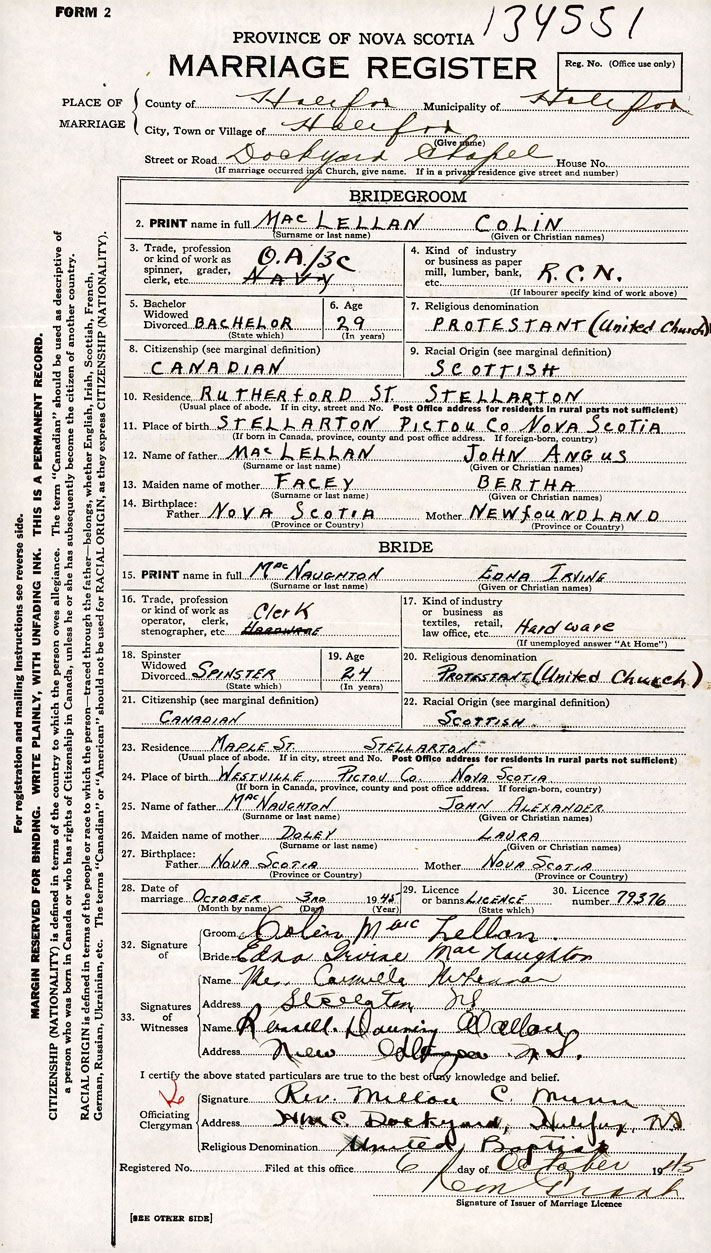 FORM 2
134551
PROVINCE OF NOVA SCOTIA
MARRIAGE REGISTER
Reg. No. (Office use only)
PLACE OF MARRIAGE
County of Halifax Municipality of Halifax
City, Town or Village of Halifax
(Give name)
Street or Road Dockyard Chapel House No.
(If marriage occurred in a Church, give name. If in a private residence give street and number)
BRIDEGROOM
2. PRINT name in full MacLELLAN COLIN
(Surname or last name) (Given or Christian names)
3. Trade, profession or kind of work as spinner, grader, clerk, etc. O.A./3C NAVY
4. Kind of industry or business as paper mill, lumber, bank, etc. R.C.N.
(If labourer specify kind of work above)
5. Bachelor Widowed Divorced BACHELOR
(State which)
6. Age 29
(In years)
7. Religious denomination
PROTESTANT (United Church)
8. Citizenship (see marginal definition)
CANADIAN
9. Racial Origin (see marginal definition)
SCOTTISH
10. Residence RUTHERFORD ST. STELLARTON
(Usual place of abode. If in city, street and No. Post Office address for residents in rural parts not sufficient)
11. Place of birth STELLARTON PICTOU CO NOVA SCOTIA
(If born in Canada, province, county and post office address. If foreign-born, country)
12. Name of father MacLELLAN JOHN ANGUS
(Surname or last name) (Given or Christian names)
13. Maiden name of mother FACEY BERTHA
(Surname or last name) (Given or Christian names)
14. Birthplace: Father NOVA SCOTIA Mother NEWFOUNDLAND
(Province or Country) (Province or Country)
BRIDE
15. PRINT name in full MacNAUGHTON EDNA IRVINE
(Surname or last name) (Given or Christian names)
16. Trade, profession or kind of work as operator, clerk, stenographer, etc. Clerk HARDWARE
17. Kind of industry or business as textiles, retail, law office, etc. Hardware
(If unemployed answer "At Home")
18. Spinster Widowed Divorced SPINSTER
(State which)
19. Age 24
(In years)
20. Religious denomination
PROTESTANT (United Church)
21. Citizenship (see marginal definition)
CANADIAN
22. Racial Origin (see marginal definition)
SCOTTISH
23. Residence MAPLE ST. STELLARTON
(Usual place of abode. If in city, street and No. Post Office address for residents in rural parts not sufficient)
24. Place of birth WESTVILLE, PICTOU CO. NOVA SCOTIA
(If born in Canada, province, county and post office address. If foreign-born, country)
25. Name of father MacNAUGHTON JOHN ALEXANDER
(Surname or last name) (Given or Christian names)
26. Maiden name of mother DOLEY LAURA
(Surname or last name) (Given or Christian names)
27. Birthplace: Father NOVA SCOTIA Mother NOVA SCOTIA
(Province or Country) (Province or Country)
28. Date of marriage OCTOBER 3RD 1945
(Month by name) (Day) (Year)
29. Licence or banns LICENCE
(State which)
30. Licence number 79376
32. Signature of
Groom Colin MacLellan
Bride Edna Irvine MacNaughton
33. Signatures of Witnesses
Name Mrs.
Address Stellarton NS
Name Russell
Address New N.S.
I certify the above stated particulars are true to the best of my knowledge and belief.
Officiating Clergyman
Signature Rev. C
Address HMC Dockyard, Halifax, NS
Religious Denomination United Baptist
Registered No. Filed at this office 6 day of October 1945
Signature of Issuer of Marriage Licence
[SEE OTHER SIDE]
For registration and mailing instructions see reverse side.
MARGIN RESERVED FOR BINDING. WRITE PLAINLY, WITH UNFADING INK. THIS IS A PERMANENT RECORD.
CITIZENSHIP (NATIONALITY) is defined in terms of the country to which the person owes allegiance. The term "Canadian" should be used as descriptive of
a person who was born in Canada or who has rights of Citizenship in Canada, unless he or she has subsequently become the citizen of another country.
RACIAL ORIGIN is defined in terms of the people or race to which the person—traced through the father—belongs, whether English, Irish, Scottish, French,
German, Russian, Ukrainian, etc. The terms "Canadian" or "American" should not be used for RACIAL ORIGIN, as they express CITIZENSHIP (NATIONALITY).